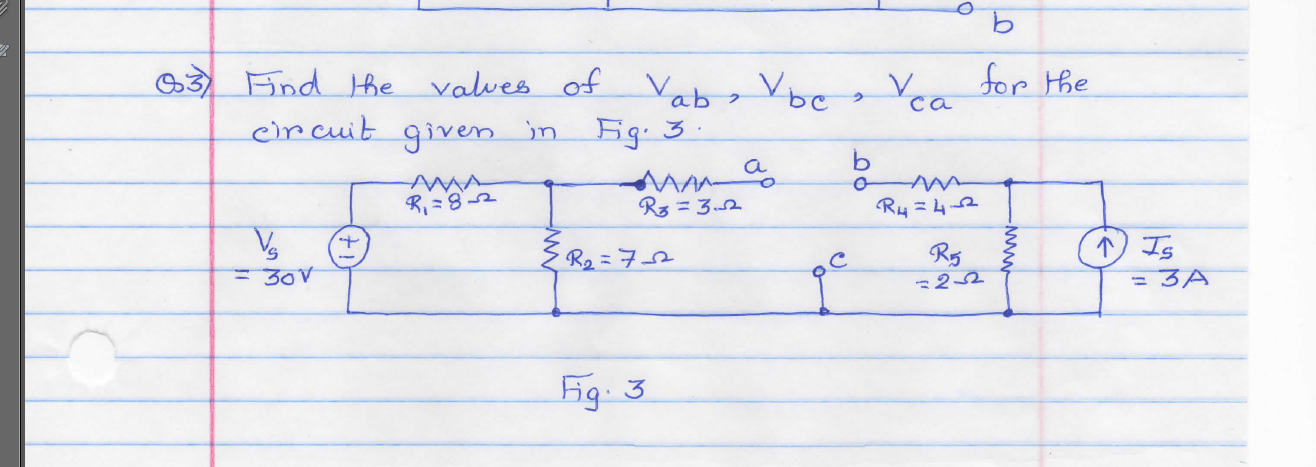 b
Q3) Find the values of Vab, Vbc, Vca for the
circuit given in Fig. 3.
a b
R1 = 8Ω R3 = 3Ω R4 = 4Ω
Vs
= 30V
+
−
R2 = 7Ω
c
R5
= 2Ω
↑
Is
= 3A
Fig. 3